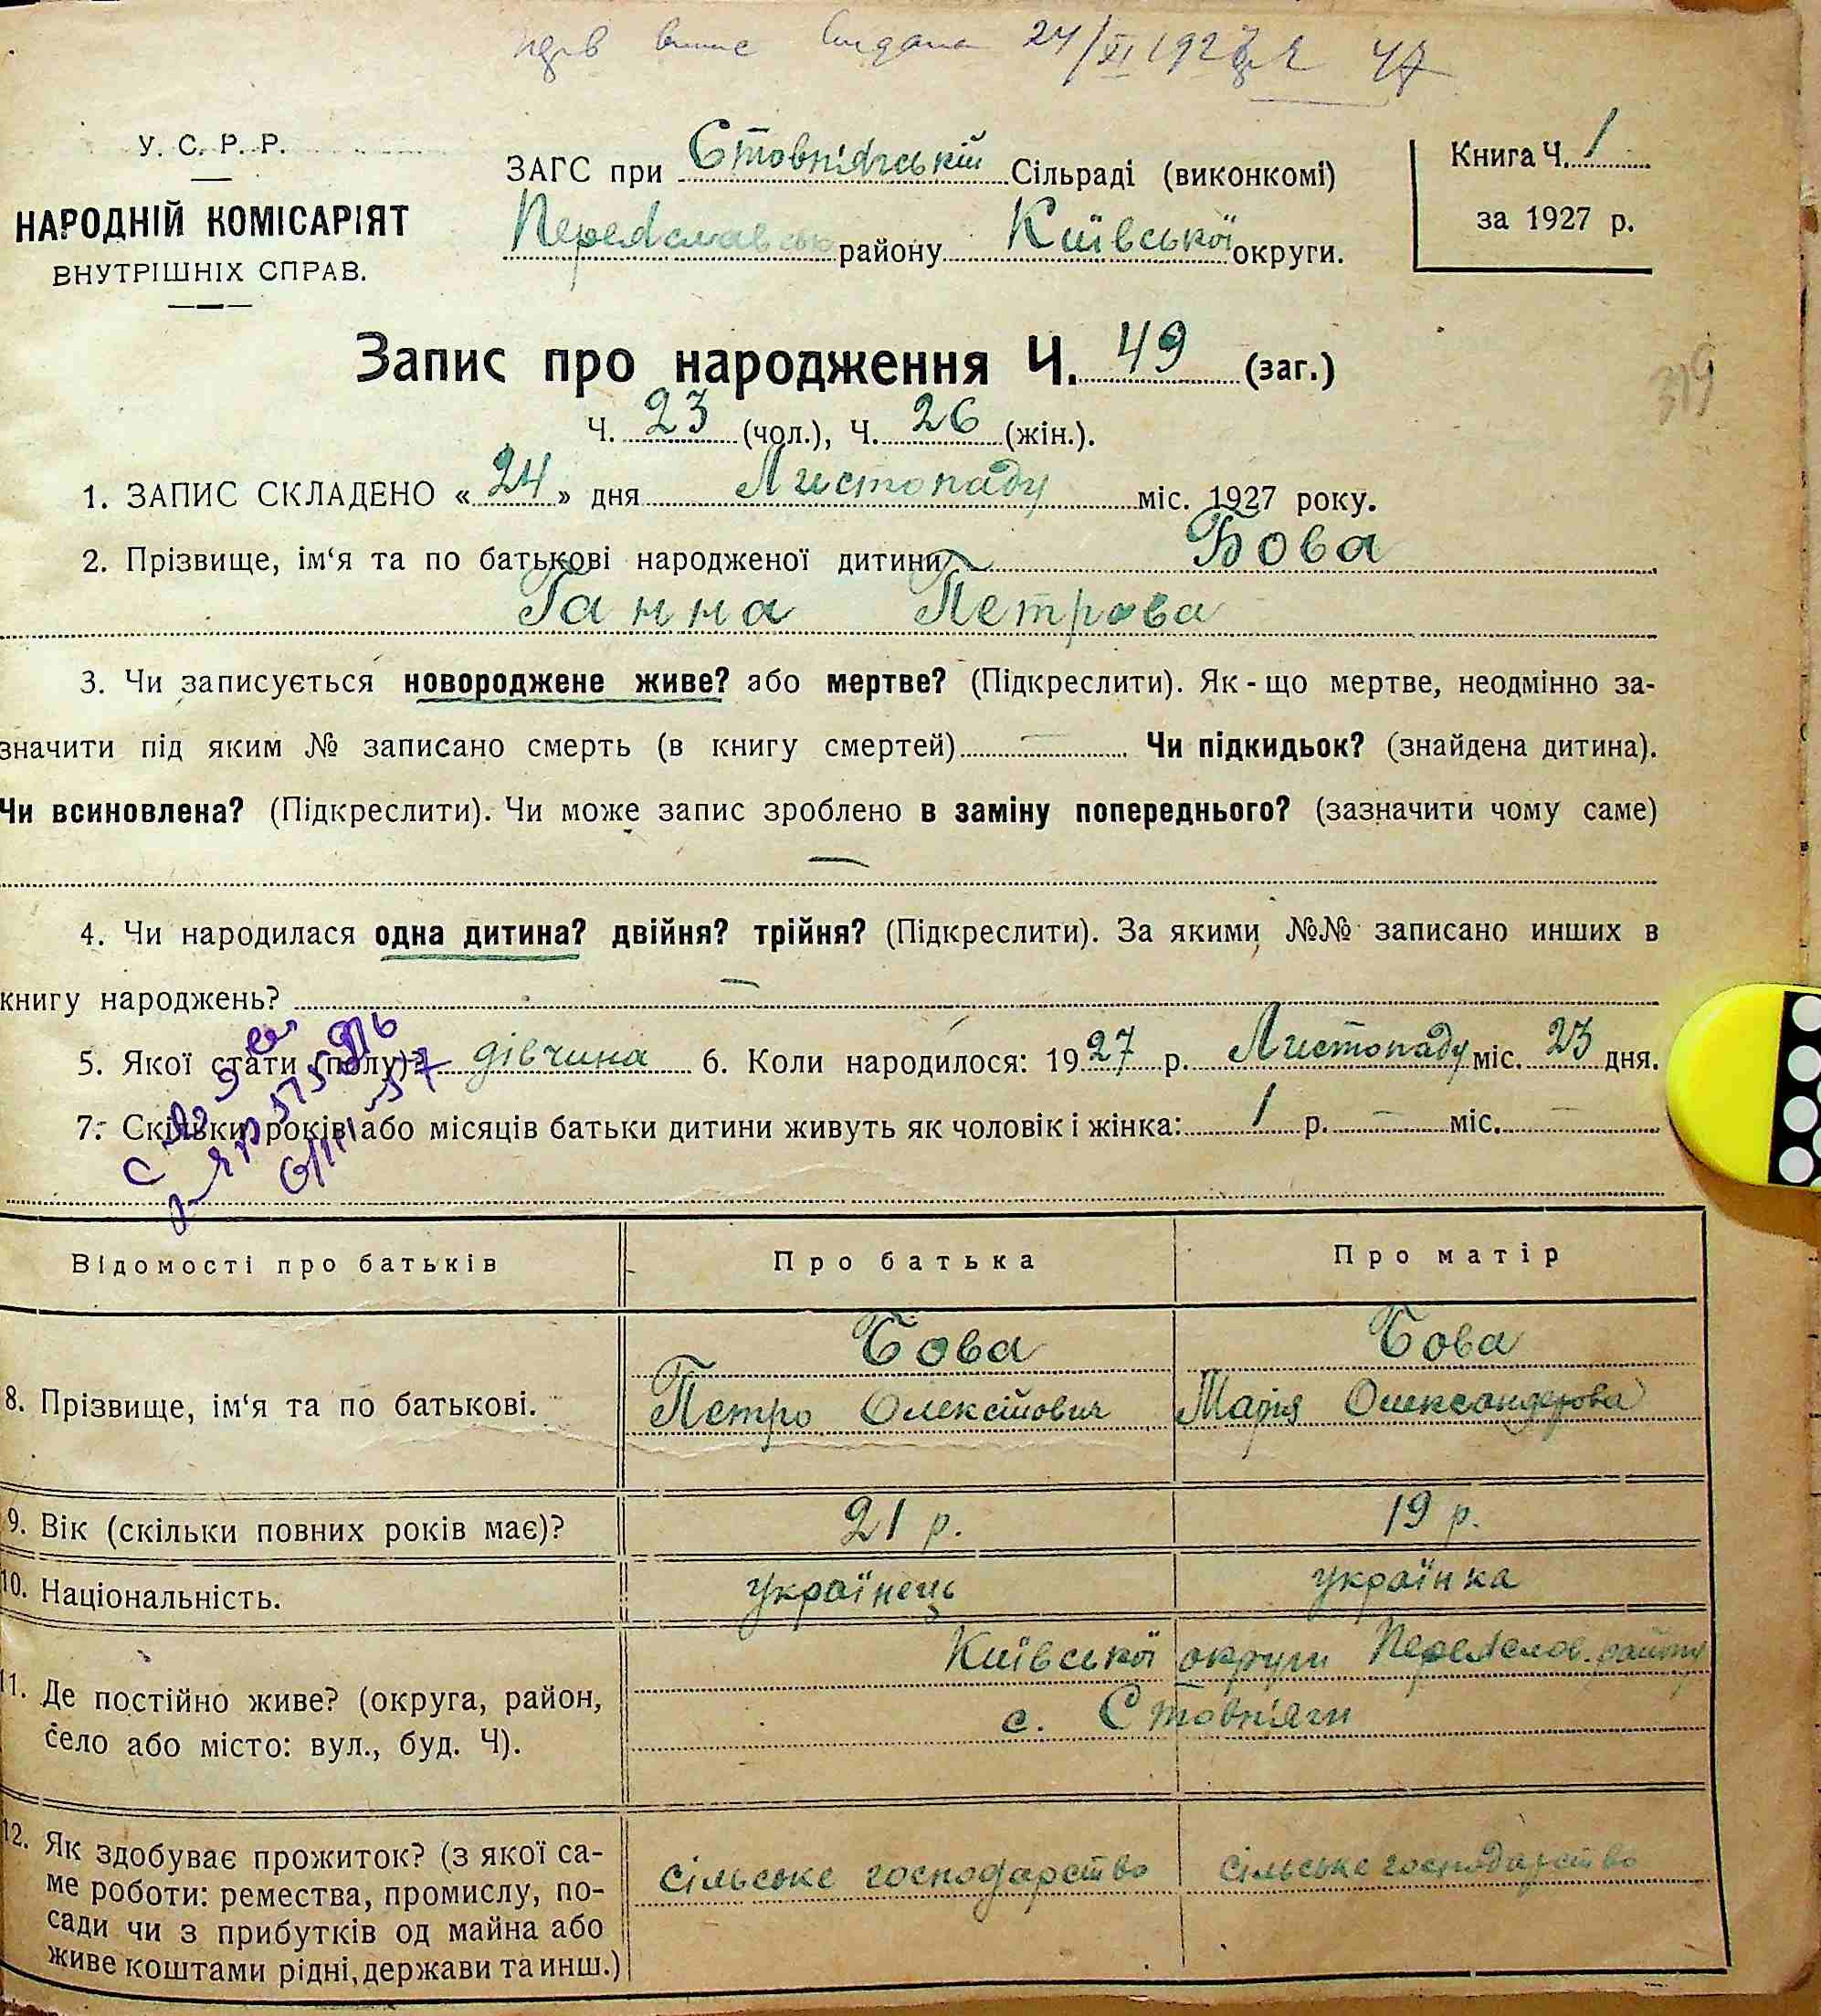 24/XI 1927 р 47
У. С. Р. Р.
НАРОДНІЙ КОМІСАРІЯТ
ВНУТРІШНІХ СПРАВ.
ЗАГС при Стовпʼязькій Сільраді (виконкомі)
Переяславськ району Київської округи.
Книга Ч. 1
за 1927 р.
Запис про народження Ч. 49 (заг.)
319
Ч. 23 (чол.), Ч. 26 (жін.).
1. ЗАПИС СКЛАДЕНО «24» дня Листопаду міс. 1927 року.
2. Прізвище, ім‘я та по батькові народженої дитини Бова
Ганна Петрова
3. Чи записується новороджене живе? або мертве? (Підкреслити). Як-що мертве, неодмінно за-
значити під яким № записано смерть (в книгу смертей) — Чи підкидьок? (знайдена дитина).
Чи всиновлена? (Підкреслити). Чи може запис зроблено в заміну попереднього? (зазначити чому саме)
—
4. Чи народилася одна дитина? двійня? трійня? (Підкреслити). За якими №№ записано инших в
книгу народжень? —
5. Якої стати (полу)? дівчина 6. Коли народилося: 1927 р. Листопаду міс. 23 дня.
7. Скільки років або місяців батьки дитини живуть як чоловік і жінка: 1 р. — міс. —
Відомості про батьків
Про батька
Про матір
8. Прізвище, ім‘я та по батькові.
Бова
Петро Олексійович
Бова
Марія Олександрова
9. Вік (скільки повних років має)?
21 р.
19 р.
10. Національність.
українець
українка
11. Де постійно живе? (округа, район,
село або місто: вул., буд. Ч).
Київської округи Переяслов. району
с. Стовпʼяги
12. Як здобуває прожиток? (з якої са-
ме роботи: ремества, промислу, по-
сади чи з прибутків од майна або
живе коштами рідні, держави та инш.)
сільське господарство
сільське господарство